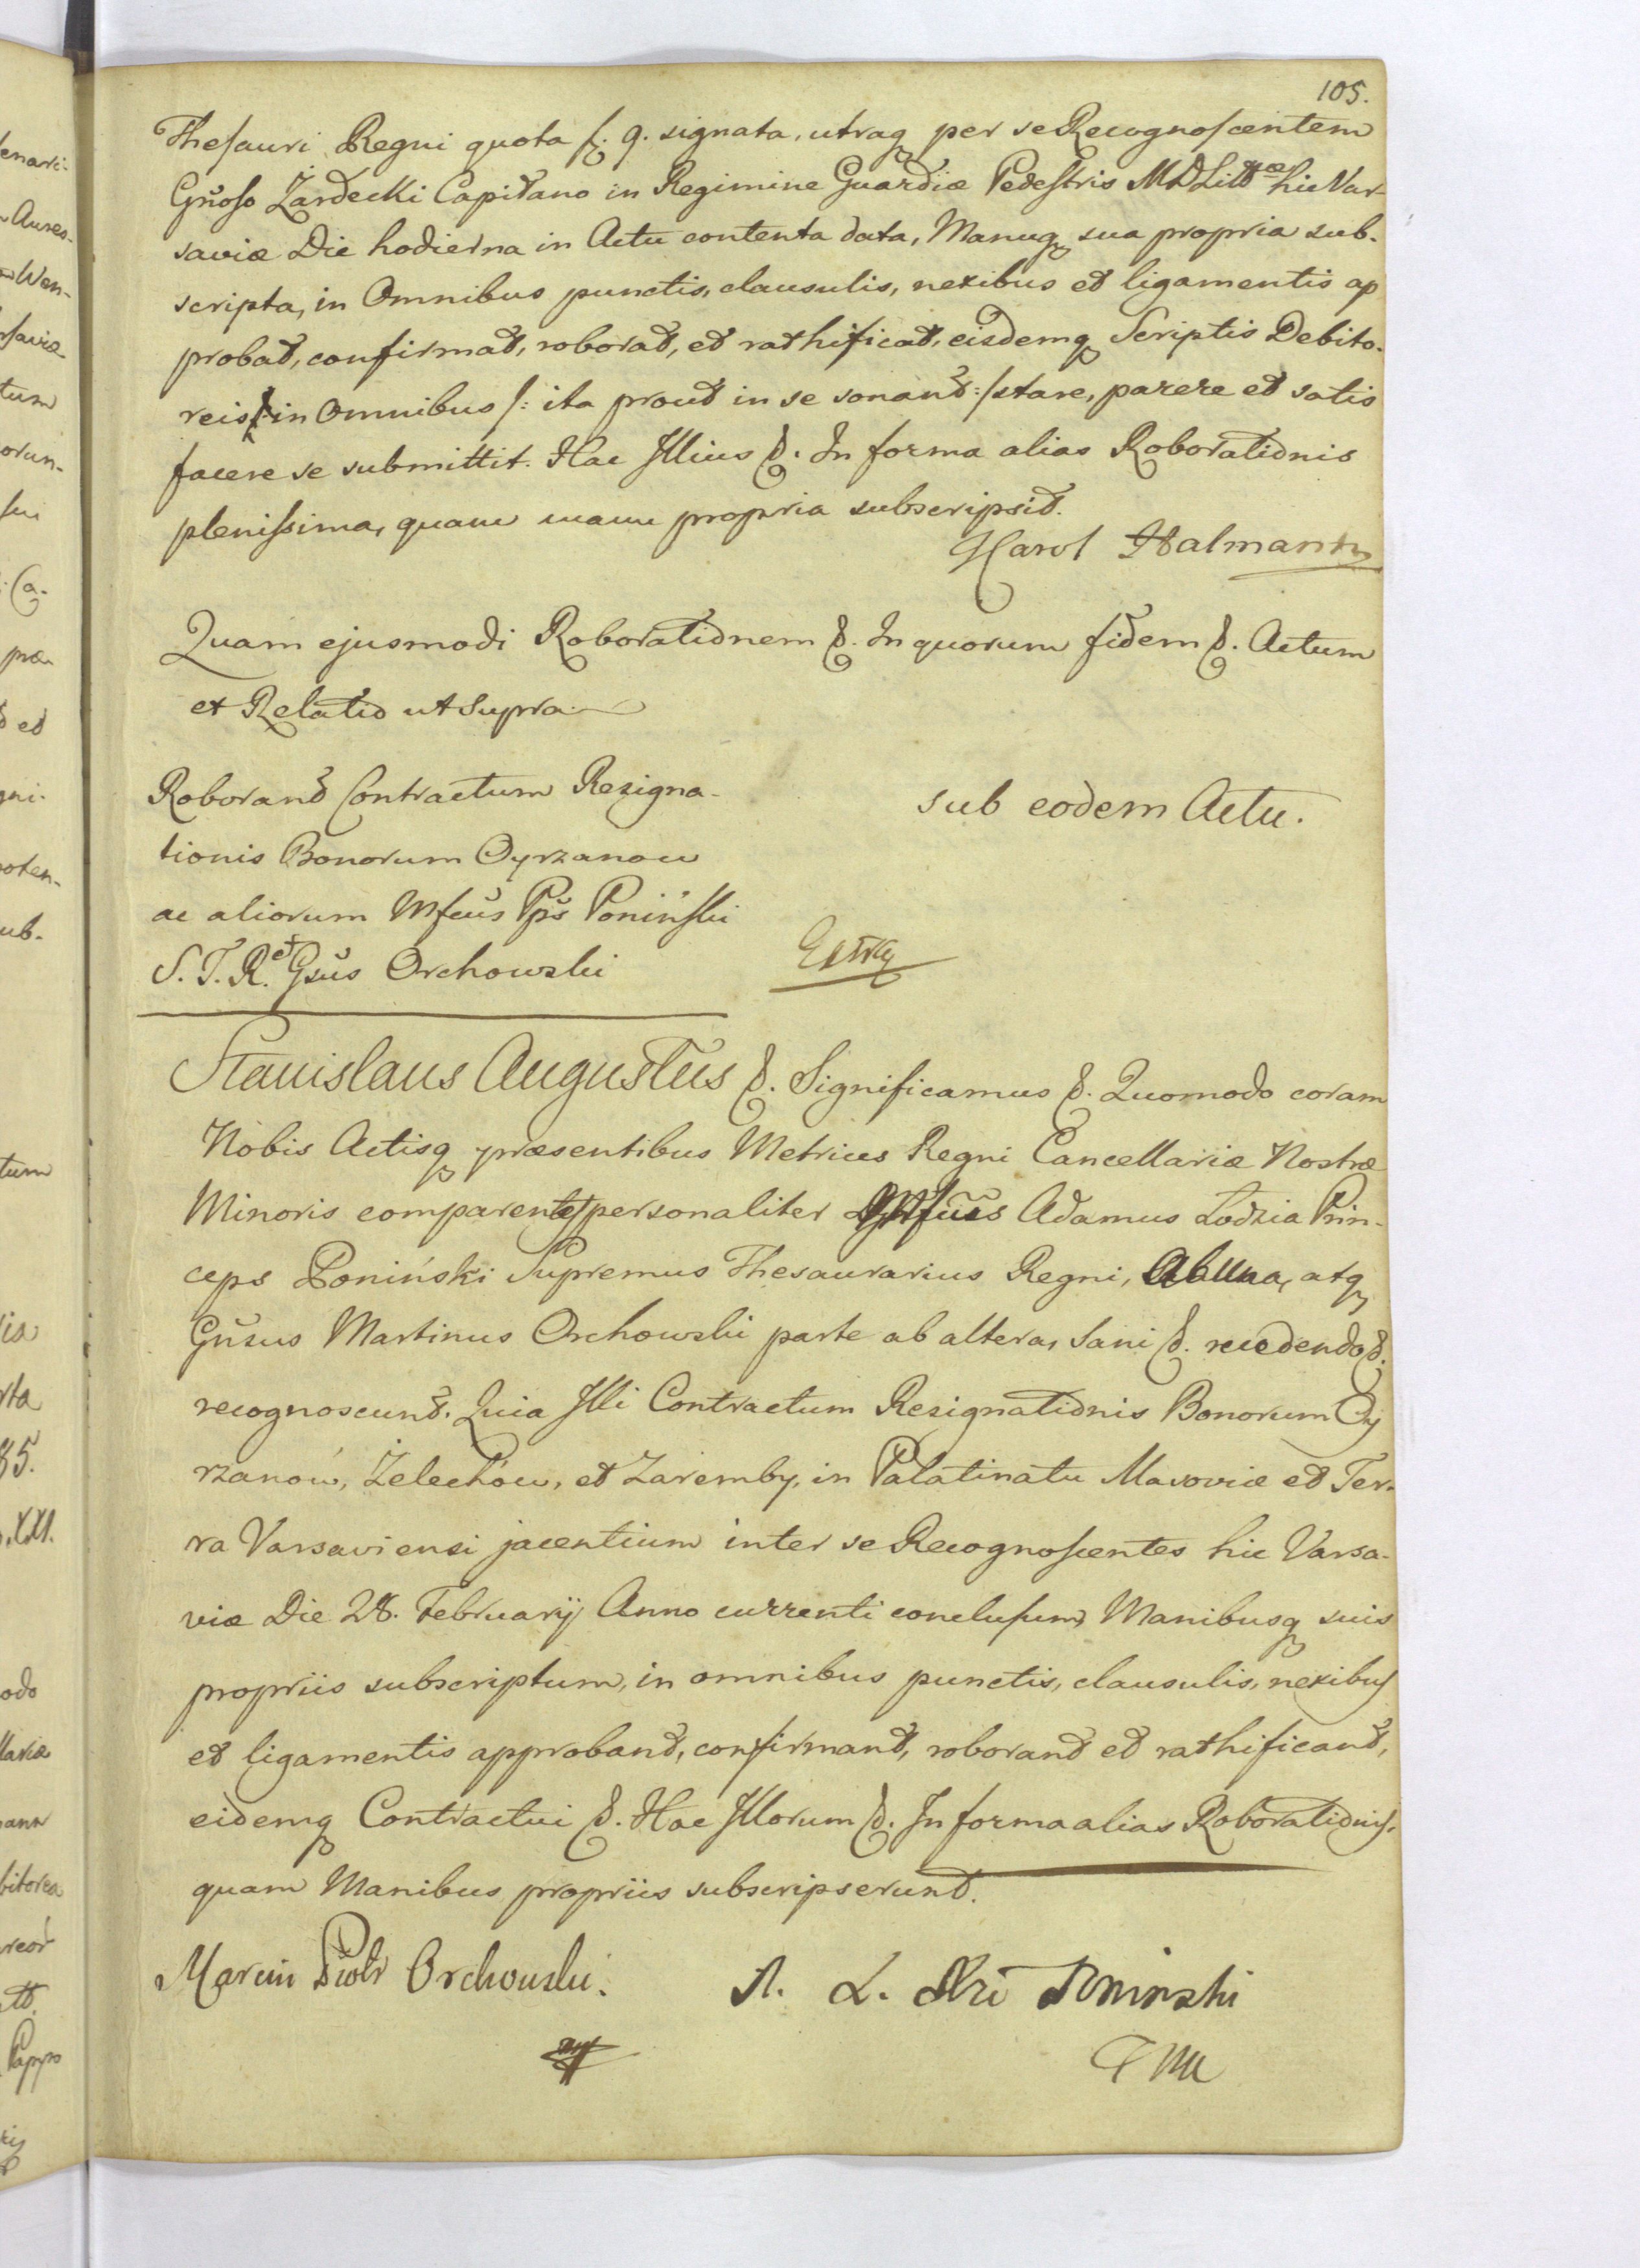 105.
Thesauri Regni quota f. 9. signata, utraq per se Recognoscentem
Gnoso Żardecki Capitano in Regimine Guardiæ Pedestris MDLittæ hic Var-
saviæ Die hodierna in Actu contenta data, Manuq sua propria sub-
scripta, in Omnibus punctis, clausulis, nexibus et ligamentis ap
probat, confirmat, roborat, et rathificat, eisdemq Scriptis Debito-
reis in Omnibus /: ita prout in se sonant :/ stare, parere et satis
facere se submittit. Hac Illius &. In forma alias Roborationis
plenissima, quam manu propria subscripsit.
Karol Halmann
Quam ejusmodi Roborationem &. In quorum fidem &. Actum
et Relatio ut supra
Roborant Contractum Rezigna-
tionis Bonorum Oyrzanow
ac aliorum Mfcus Pps Poniński
S. T. R. et Gsus Orchowski
sub eodem Actu.
Extra
Stanislaus Augustus &. Significamus &. Quomodo coram
Nobis Actisq præsentibus Metrices Regni Cancellariæ Nostræ
Minoris comparentes personaliter Adamus Lodzia Prin-
ceps Poniński Supremus Thesaurarius Regni, Ab una, atq
Gnsus Martinus Orchowski parte ab altera, Sani &. recedendo &.
recognoscunt. Quia Illi Contractum Resignationis Bonorum Oy
rzanow, Żelechów, et Zaremby, in Palatinatu Masoviæ et Ter-
ra Varsaviensi jacentium inter se Recognoscentes hic Varsa-
viæ Die 28. Februarij Anno currenti conclusum, Manibusq suis
propriis subscriptum, in omnibus punctis, clausulis, nexibus
et ligamentis approbant, confirmant, roborant et rathificant,
eidemq Contractui &. Hac Illorum &. In forma alias Roborationis.
quam Manibus propriis subscripserunt.
Marcin Piotr Orchowski.
A. L. Poninski